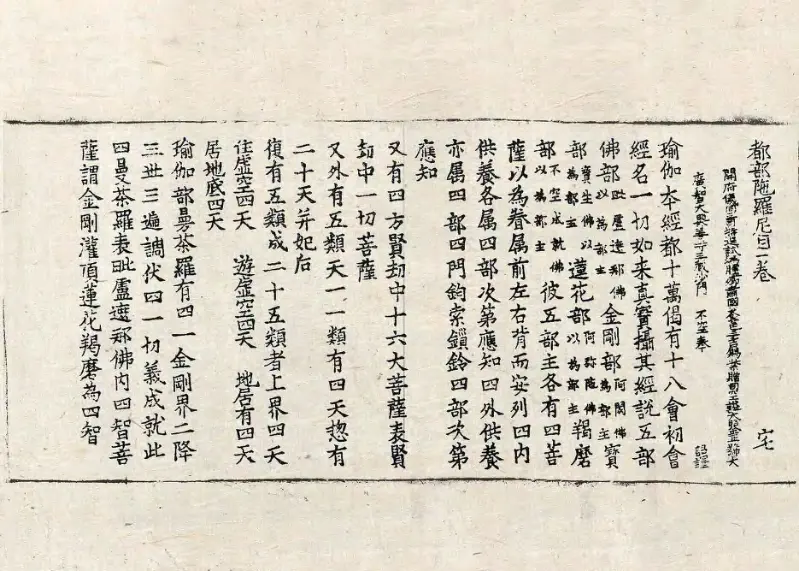 都部陁羅尼目一卷
開府儀同三司特進試鴻臚卿肅國公食邑三千戶賜紫贈司空謚大鑒正號大
廣智大興善寺三藏沙門 不空奉 詔譯
瑜伽本經都十萬偈有十八會初會
經名一切如来真實攝其經說五部
佛部毗盧遮那佛以為部主金剛部阿閦佛為部主寶
部寶生佛以為部主蓮花部阿弥陀佛以為部主羯磨
部不空成就佛以為部主彼五部主各有四菩
薩以為眷属前左右背而安列四内
供養各属四部次第應知四外供養
亦属四部四門鉤索鏁鈴四部次第
應知
又有四方賢劫中十六大菩薩表賢
劫中一切菩薩
又外有五類天一一類有四天惣有
二十天并妃后
復有五類成二十五類者上界四天
住虛空四天 遊虛空四天 地居有四天
居地底四天
瑜伽部曼荼羅有四一金剛界二降
三世三遍調伏四一切義成就此
四曼荼羅表毗盧遮那佛内四智菩
薩謂金剛灌頂蓮花羯磨為四智